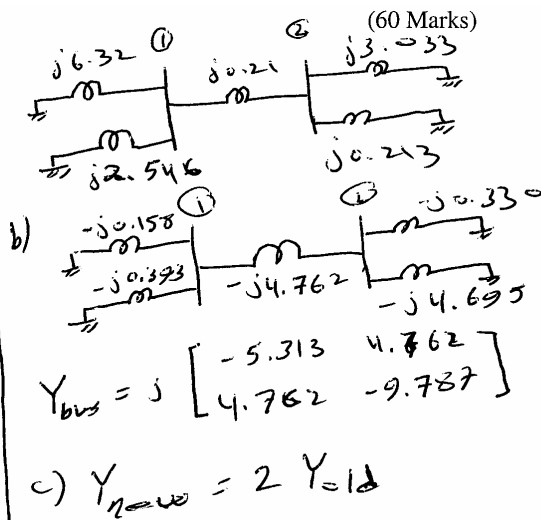 (60 Marks)
j6.32 ① j0.21 ② j3.033
j2.546 j0.213
b) -j0.158 ① ② -j0.330
-j0.393 -j4.762 -j4.695
Ybus = j [ -5.313 4.762
4.762 -9.787 ]
c) Ynew = 2 Yold